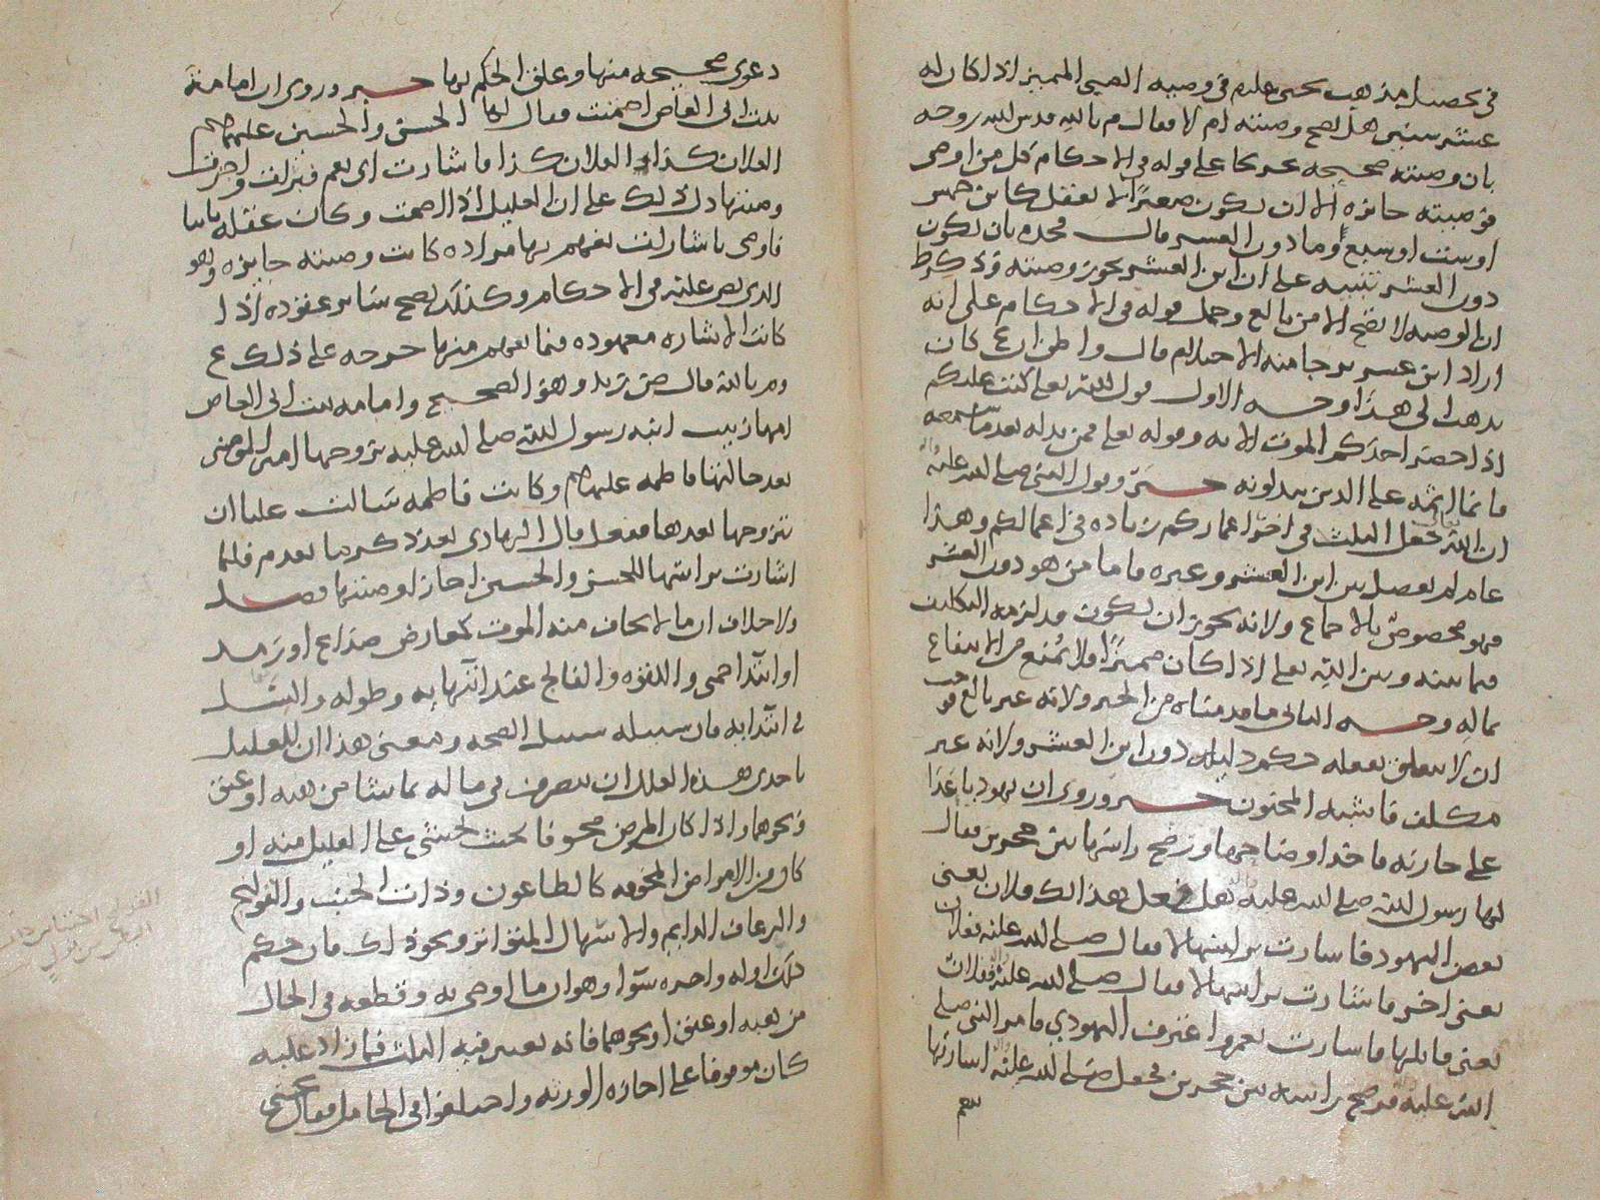 في تحصيل مذهب يحيى عليلم في وصية الصبي المميز اذا كان له
عشر سنين هل تصح وصيته ام لا فقال م بالله قدس الله روحه
بان وصيته صحيحه تخريجا على قوله في الاحكام كل من اوصى
فوصيته جايزه الا ان يكون صغيرًا لا يعقل كابن خمس
او ست او سبع وما دون العشر قال فحده بان يكون
دون العشر تنبيه على ان ابن العشر يجوز وصيته وذكر ط
ان الوصيه لا تصح الا من بالغ وحمل قوله في الاحكام على انه
اراد ابن عشر يرجا منه الاحتلام قال واظن ان ع كان
يذهب الى هذا وجه الاول قول الله تعالى كتب عليكم
اذا حضر احدكم الموت الايه وقوله تعالى فمن بدله بعدما سمعه
فانما اثمه على الذين يبدلونه خبر وقول النبي صلى الله عليه
ان الله تعالى جعل الثلث في اخر اعماركم زياده في اعمالكم وهذا
عام لم يفصل بين ابن العشر وغيره فاما من هو دون العشر
فهو مخصوص بالاجماع ولانه يجوز ان يكون قد لزمه التكليف
فيما بينه وبين الله تعالى اذا كان مميزًا فلا يمنع من الانتفاع
بماله وجه الثاني ما قدمناه من الخبر ولانه غير بالغ فوجب
ان لا يتعلق بفعله حكم دليله دون ابن العشر ولانه غير
مكلف فاشبه المجنون خبر وروي ان يهوديا عدا
على جاريه فاخذ اوضاحها ورضخ راسها بين حجرين فقال
لها رسول الله صلى الله عليه هل فعل بك هذا فلان يعني
بعض اليهود فاشارت براسها لا فقال صلى الله عليه ففلان
يعني اخر فاشارت براسها لا فقال صلى الله عليه ففلان
يعني قاتلها فاشارت نعم واعترف اليهودي فامر النبي صلى
الله عليه فرضخ راسه بين حجرين فجعل صلى الله عليه اشارتها
نعم
دعوى صحيحه منها وعلق الحكم بها خبر وروي ان امامه
بنت ابي العاص اصمتت فقال لها الحسن والحسين عليهم
لفلان كذا ولفلان كذا فاشارت اي نعم فنزلت واجرت
وصيتها دل ذلك على ان العليل اذا اصمت وكان عقله ثابتا
فاوصى باشارات يفهم بها مراده كانت وصيته جايزه وهو
الذي نص عليه في الاحكام وكذلك يصح سائر عقوده اذا
كانت الاشاره معهوده فيما يفهم منها خرجه على ذلك ع
وم بالله قال ض زيد وهو الصحيح وامامه بنت ابي العاص
امها زينب ابنة رسول الله صلى الله عليه تزوجها امير المومنين
بعد خالتها فاطمه عليهم وكانت فاطمه سالت عليا ان
يتزوجها بعدها ففعل قال الهادي بعد ذكر ما تقدم فلما
اشارت براسها للحسن والحسين اجازا وصيتها فصل
ولا خلاف ان ما لا يخاف منه الموت كعارض صداع او رمد
او ابتدا حمى واللقوه والفالج عند انتهايه وطوله والسل
في ابتدايه فان سبيله سبيل الصحه ومعنى هذا ان للعليل
باحدى هذه العلل ان يتصرف في ماله بما شا من هبه او عتق
ونحوهما واذا كان المرض مخوفا بحيث يخشى على العليل منه او
كان من الامراض المخوفه كالطاعون وذات الجنب والقولنج
والرعاف الدايم والاسهال المتواتر ونحو ذلك فان حكم
ذلك اوله واخره سوا وهو ان ما اوصى به وقطعه في الحال
من هبه او عتق او نحوهما فانه يعتبر فيه الثلث فما زاد عليه
كان موقوفا على اجازه الورثه واختلفوا في الحامل فقال يحيى